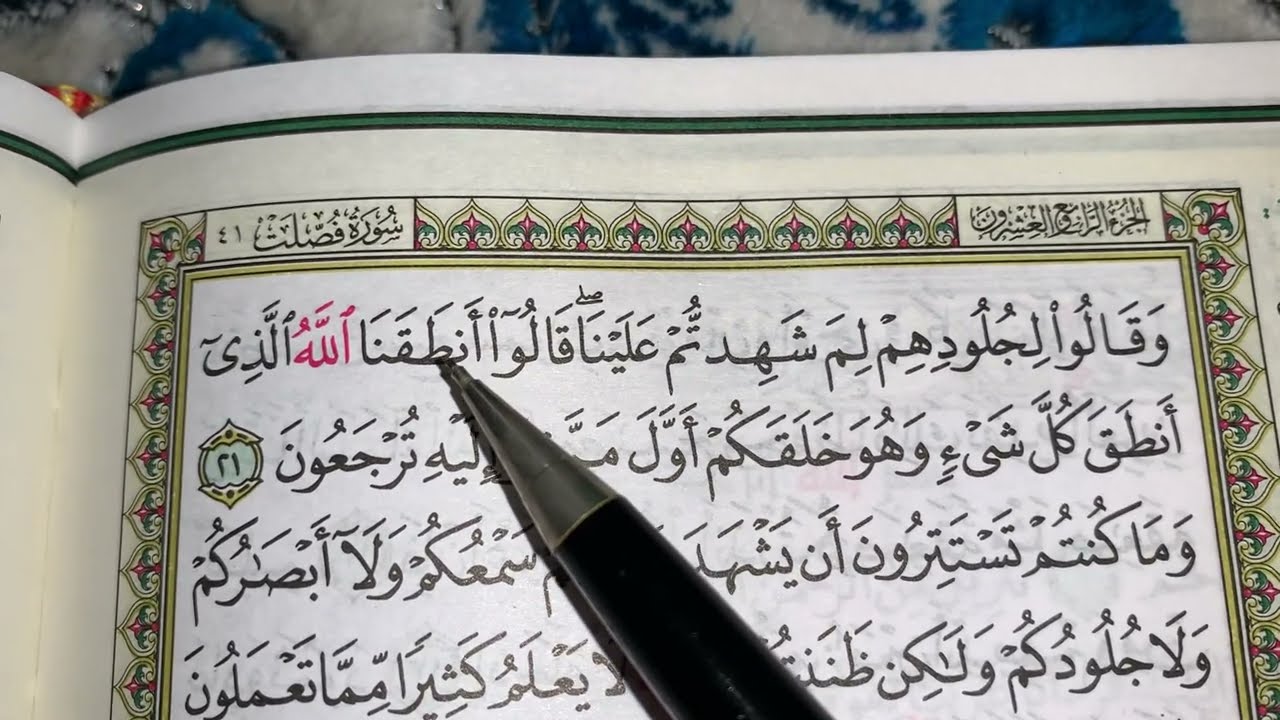 الجزء الرابع والعشرون
سورة فصلت ٤١
وَقَالُوا۟ لِجُلُودِهِمْ لِمَ شَهِدتُّمْ عَلَيْنَا ۖ قَالُوٓا۟ أَنطَقَنَا ٱللَّهُ ٱلَّذِىٓ
أَنطَقَ كُلَّ شَىْءٍ وَهُوَ خَلَقَكُمْ أَوَّلَ إِلَيْهِ تُرْجَعُونَ ٢١
وَمَا كُنتُمْ تَسْتَتِرُونَ أَن يَشْهَدَ سَمْعُكُمْ وَلَآ أَبْصَـٰرُكُمْ
وَلَا جُلُودُكُمْ وَلَـٰكِن لَا يَعْلَمُ كَثِيرًا مِّمَّا تَعْمَلُونَ